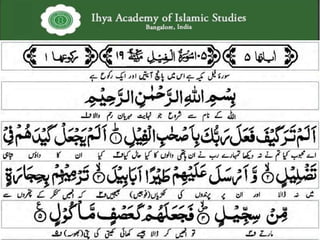 Ihya Academy of Islamic Studies
Bangalore, India
اٰیاتہا ۵ ۱۰۵ سُوْرَةُ الْفِيْلِ مَكِّيَّةٌ ۱۹ رکوعہا ۱
سورۂ فیل مکیہ ہے اس میں پانچ آیتیں اور ایک رکوع ہے
بِسْمِ اللّٰهِ الرَّحْمٰنِ الرَّحِيْمِ
اللہ کے نام سے شروع جو نہایت مہربان رحم والا
اَلَمْ تَرَ كَيْفَ فَعَلَ رَبُّكَ بِاَصْحٰبِ الْفِيْلِ ۱ اَلَمْ يَجْعَلْ كَيْدَهُمْ فِيْ
اے محبوب کیا تم نے نہ دیکھا تمہارے رب نے ان ہاتھی والوں کا کیا حال کیا کیا ان کا داؤں تباہی
تَضْلِيْلٍ ۲ وَّاَرْسَلَ عَلَيْهِمْ طَيْرًا اَبَابِيْلَ ۳ تَرْمِيْهِمْ بِحِجَارَةٍ
میں نہ ڈالا اور ان پر پرندوں کی ٹکڑیاں (فوجیں) بھیجیں کہ انہیں کنکر کے پتھروں سے
مِّنْ سِجِّيْلٍ ۴ فَجَعَلَهُمْ كَعَصْفٍ مَّاْكُوْلٍ ۵
مارتے تو انہیں کر ڈالا جیسے کھائی کھیتی کی پتی (بھوسہ)